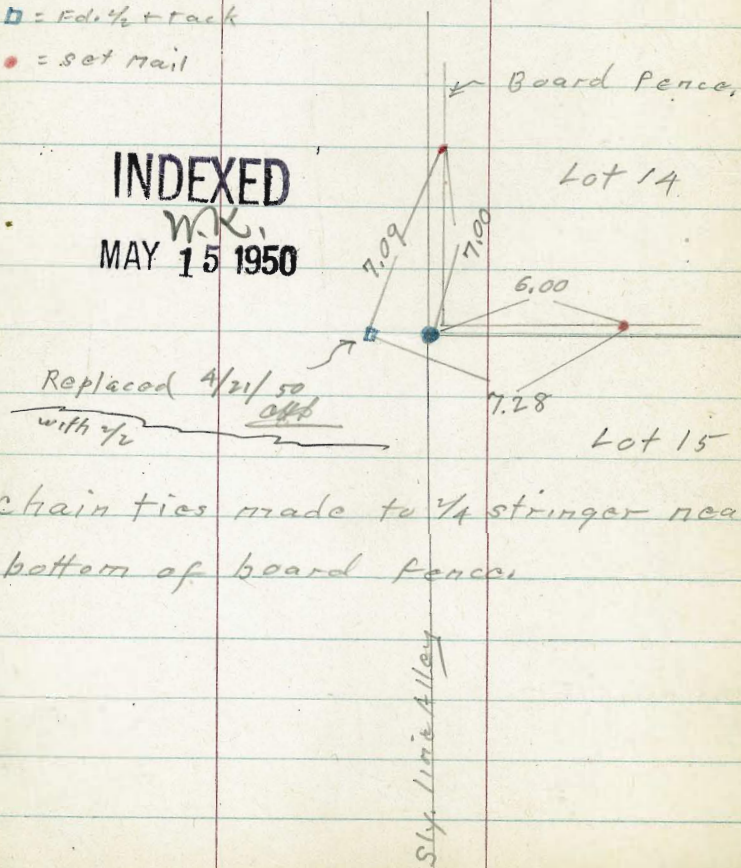 = Fd. 2/2 + tack
= set nail
Board Fence.
INDEXED
W.K.
MAY 15 1950
Lot 14
7.09
7.00
6.00
7.28
Replaced 4/21/50
with 2/2
Lot 15
chain ties made to 2/4 stringer nea
bottom of board fence.
Sly. line Alley